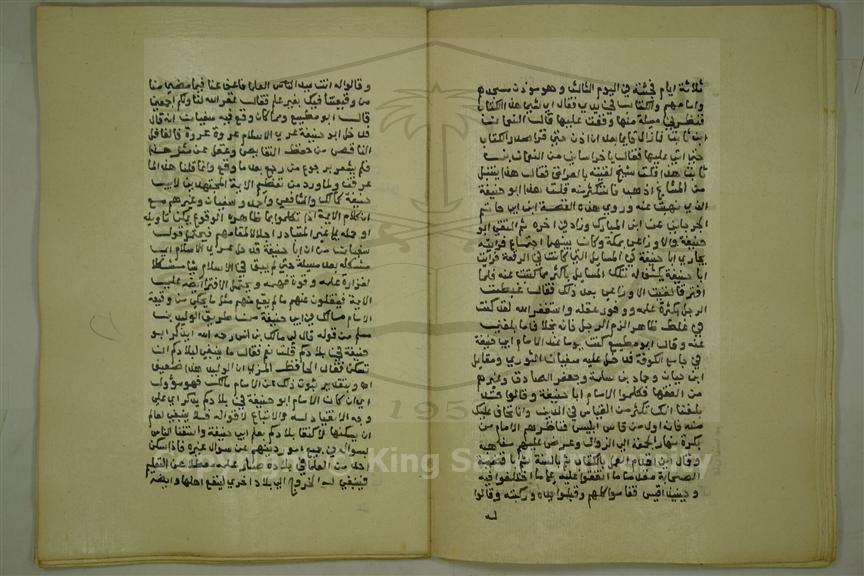 ثلاثة ايام فجئته في اليوم الثالث وهو موذن مسجدهم
وامامهم والكتاب في يدي فقال اي شي هذا الكتاب
فنظر في مسئلة منها وقفت عليها قال النعمان
ابن ثابت فما زال قايما بعد ان اذن حتى قرا صدر الكتاب
حتى اتى عليها فقال يا خراساني من النعمان بن
ثابت هذا قلت شيخ لقيته بالعراق فقال هذا نبيل
من المشايخ اذهب فاستكثر منه قلت هذا ابو حنيفة
الذي نهيت عنه وروي هذه القصة ابن ابي حاتم
الجرجاني عن ابن المبارك وزاد في اخره ثم التقى ابو
حنيفة والاوزاعي بمكة وكان بينهما اجتماع فرايته
يجاري ابا حنيفة في المسايل التي كانت في الرقعة فرايت
ابا حنيفة يكشف له تلك المسايل باكثر مما كتبت عنه فلما
افترقا لقيت الاوزاعي بعد ذلك فقال غبطت
الرجل بكثرة علمه ووفور عقله واستغفر الله لقد كنت
في غلط ظاهر الزم الرجل فانه بخلاف ما بلغني
عنه وقال ابو مطيع كنت يوما عند الامام ابي حنيفة
في جامع الكوفة فدخل عليه سفيان الثوري ومقاتل
ابن حيان وحماد بن سلمة وجعفر الصادق وغيرهم
من الفقها فكلموا الامام ابا حنيفة وقالوا قد
بلغنا انك تكثر من القياس في الدين وانا نخاف عليك
منه فانه اول من قاس ابليس فناظرهم الامام من
بكرة نهار الجمعة الى الزوال وعرض عليهم مذهبه
وقال اني اقدم العمل بالكتاب ثم بالسنة ثم باقضية
الصحابة مقدما ما اتفقوا عليه على ما اختلفوا فيه
وحينيذ اقيس فقاموا كلهم وقبلوا يده وركبته وقالوا
له
وقالوا له انت سيد الناس العلما فاعف عنا فيما مضى منا
من وقيعتنا فيك بغير علم فقال غفر الله لنا ولكم اجمعين
قال ابو مطيع ومما كان وقع فيه سفيان انه قال
قد حل ابو حنيفة عرى الاسلام عروة عروة فالعاقل
الناقص من حفظ النقايص وغفل عن مثل هذا
فلم يشعر برجوع من رجع بعد ما وقع وانما قلنا هذا لما
عرفت ولما ورد من تعظيم الايمة المجتهدين لابي
حنيفة كمالك والشافعي واحمد وسفيان وغيرهم مع
ان كلام الايمة اذا تكلموا بما ظاهره الوقوع يمكن تاويله
او حمله على غير المتبادر اجلالا لمقامهم فيحتمل قول
سفيان من ان ابا حنيفة قد حل عرى الاسلام اي
مشكله بعد مسيلة حتى لم يبق في الاسلام شيا مشكلا
لغزارة علمه وقوة فهمه ويحتمل الافترا ايضا على
الايمة فينقلون عنهم ما لم يقع منهم مثل ما يحكى من وقيعة
الامام مالك في ابي حنيفة من طريق الوليد بن
مسلم من قوله قال لي مالك بن انس رحمه الله ايذكر ابو
حنيفة في بلادكم قلت نعم فقال ما ينبغي لبلادكم ان
تسكن فقال الحافظ المزي ان الوليد هذا ضعيف
اه وبتقدير ثبوت ذلك عن الامام مالك فهو مؤول
اي ان كان الامام ابو حنيفة في بلادكم يذكر اي على
وجه الانقياد له والاتباع لاقواله فلا ينبغي لعالم
ان يسكنها لاكتفا بلادكم بعلم ابي حنيفة واستغنا الناس
بسواله في جميع امور دينهم عن سوال غيره فاذا سكن
احد من العلما في بلاده صار علمه معطلا عن التعليم
فينبغي له الخروج الى بلاد اخرى لينفع اهلها وايضا